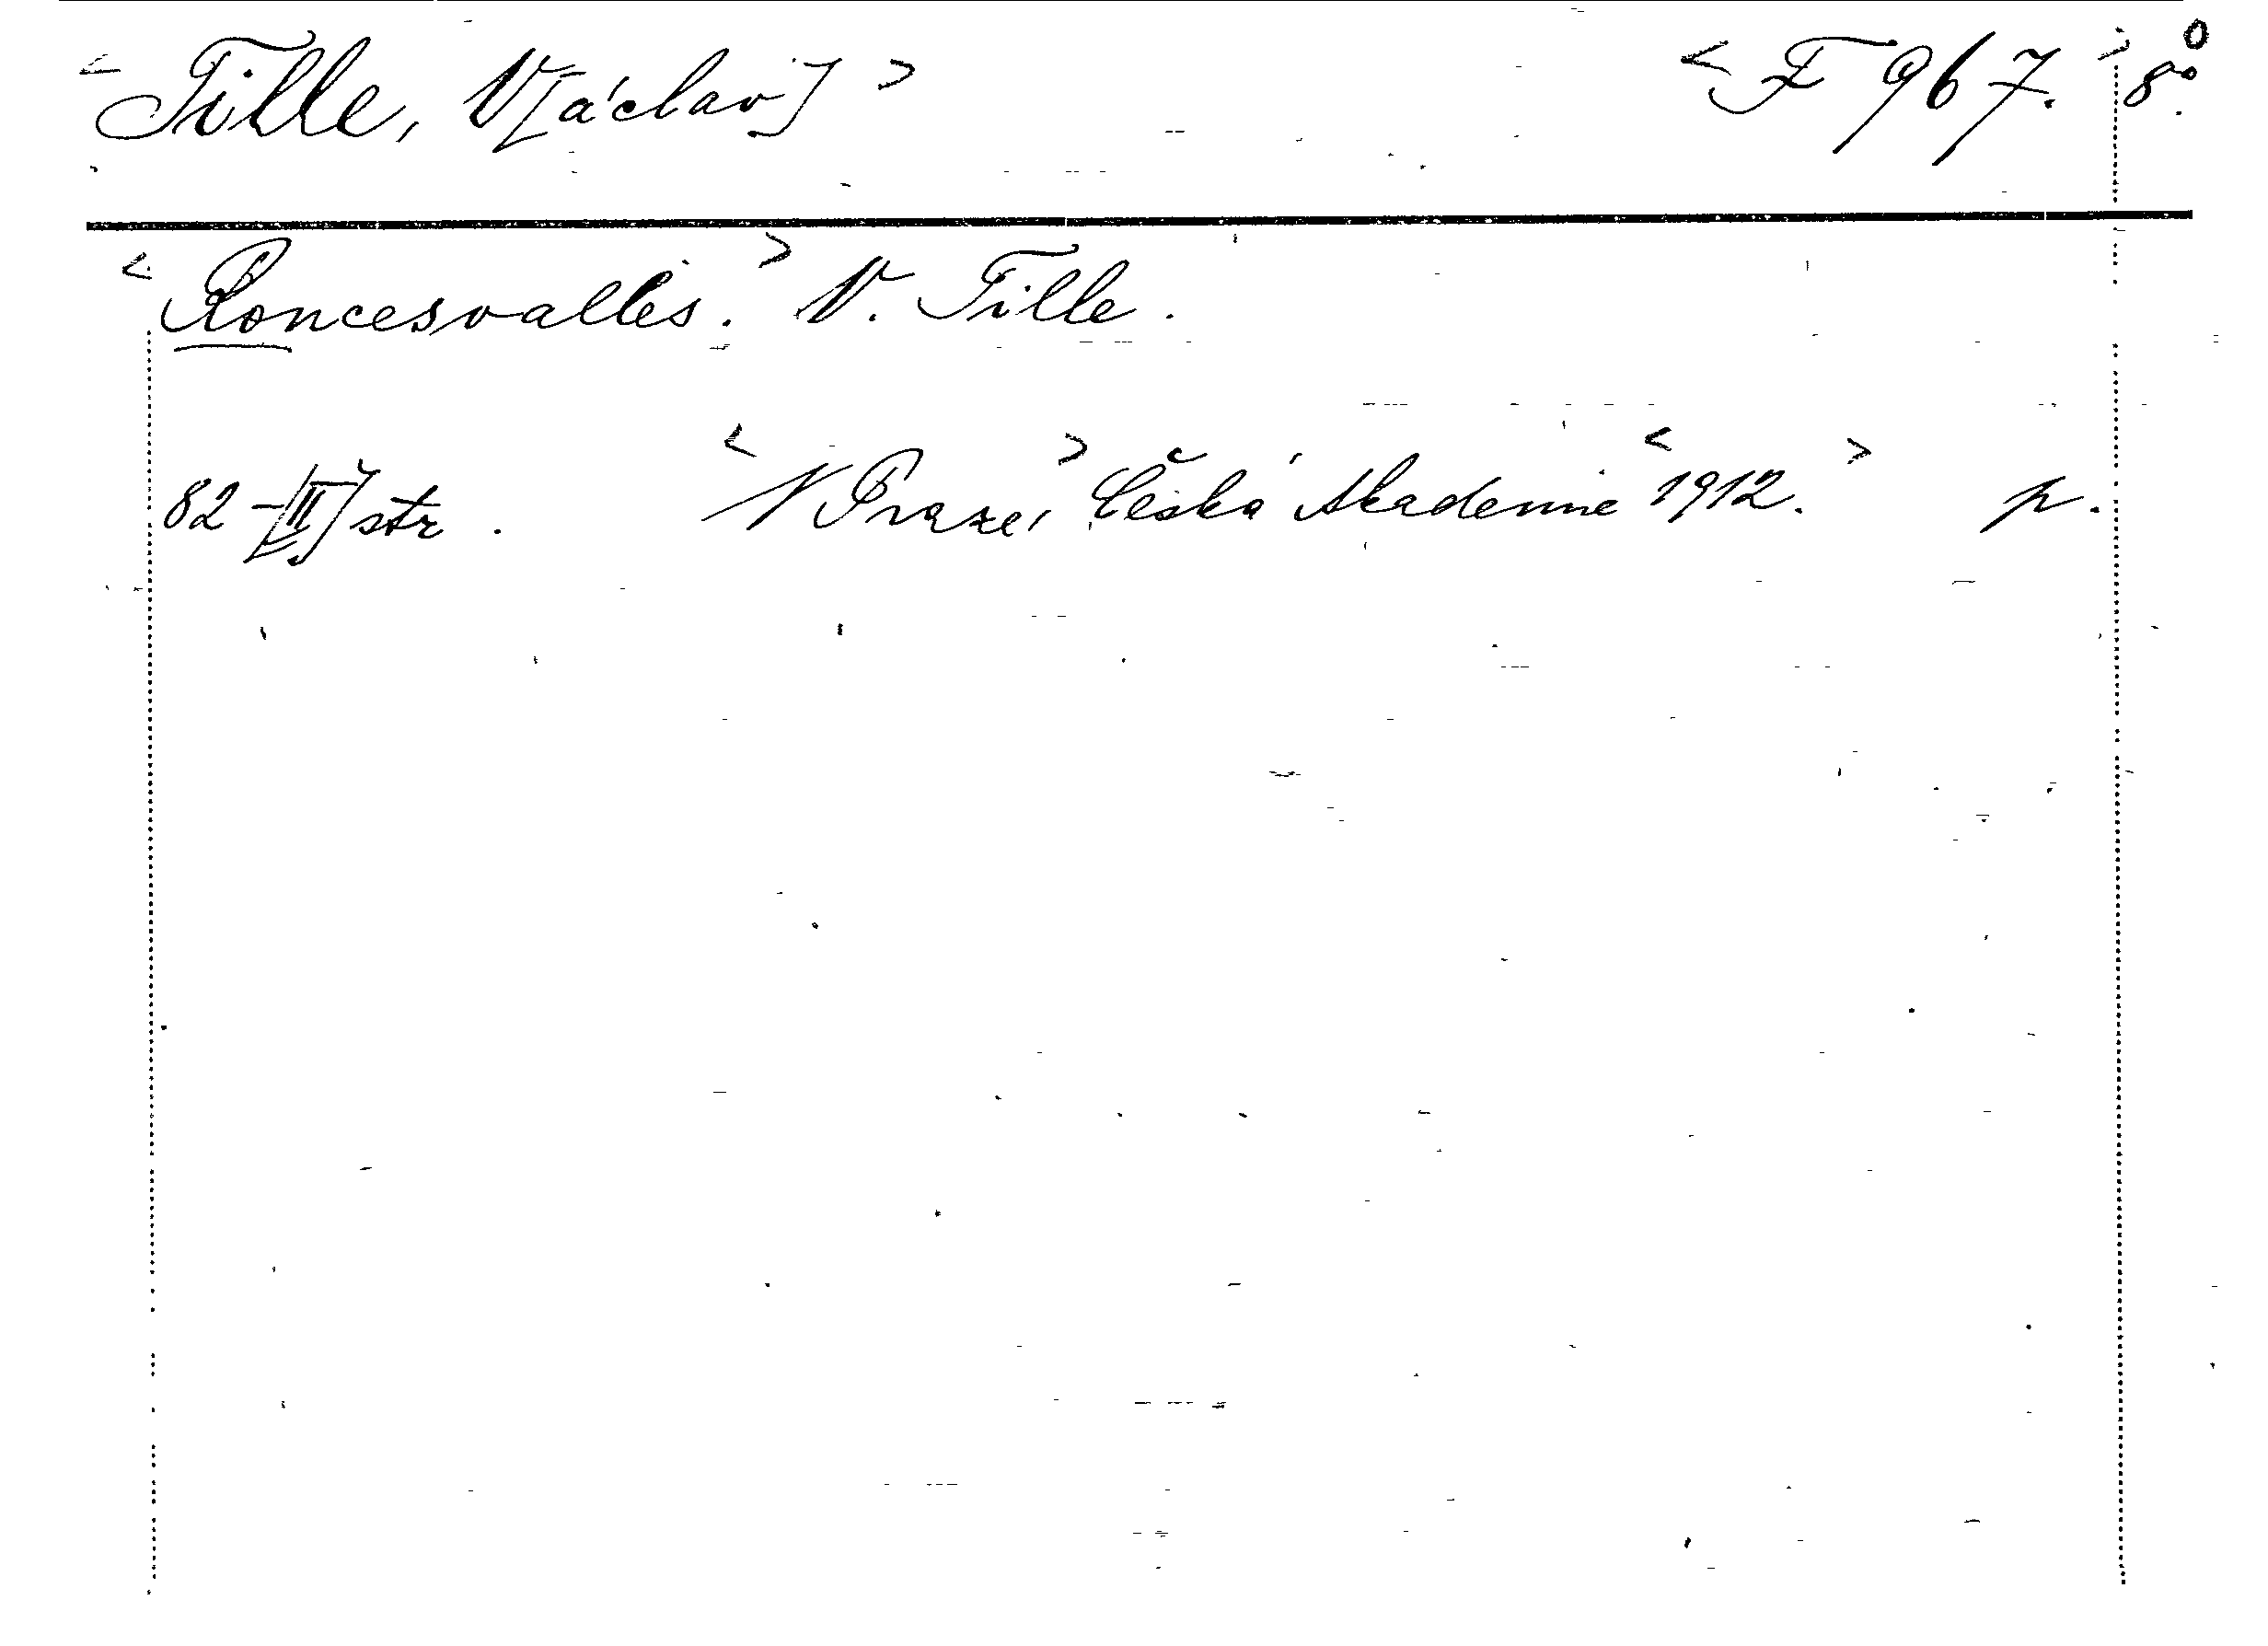 < Tille, V[áclav] > < F 967. > 8°
< Roncesvalles. > V. Tille.
82-[II] str. < V Praze, > Česká Akademie < 1912. > p.